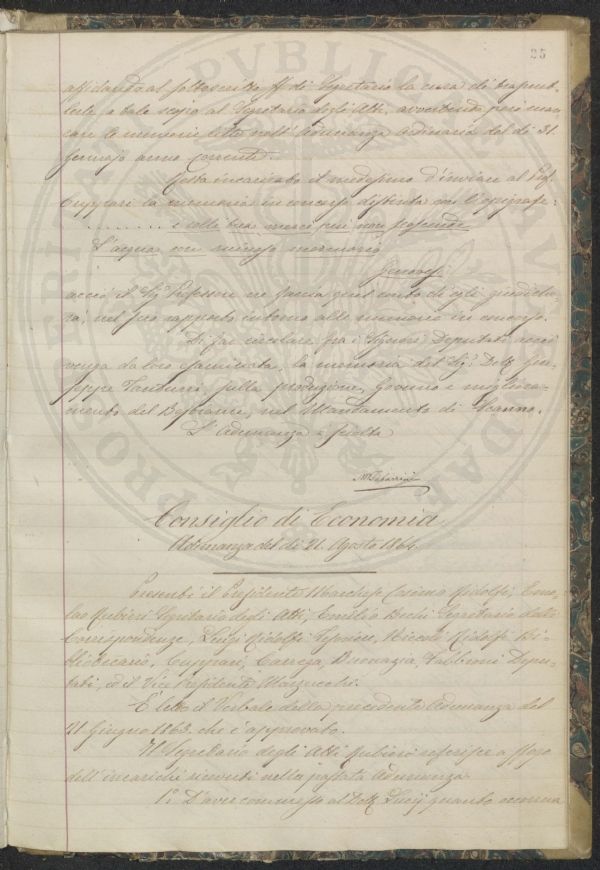 25
affidando al sottoscritto ff. di Segretario la cura di
bale, e tale scopo al Segretario degli Atti, avvertendo però man-
care le memorie lette nell'Adunanza ordinaria del dì 31.
Gennajo anno corrente.
Resta incaricato il medesimo d'inviare al Prof.
Cuppari la memoria in concorso distinta con l'epigrafe:
. . . . . . . . e colli
L'acqua con
acciò il Sig. Professore ne faccia quel conto di egli giudiche-
rà, nel suo rapporto intorno alle memorie in concorso.
Di far circolare fra i Signori Deputati acciò
venga da loro esaminata, la memoria del Sig. Dott. Giu-
seppe Tamburri, sulla produzione, Governo e migliora-
mento del Bestiame, nel Mandamento di Loanno.
L'Adunanza è sciolta
M Tabarrini
Consiglio di Economia
Adunanza del dì 21. Agosto 1864.
Presenti il Presidente Marchese Cosimo Ridolfi,
Rubieri Segretario degli Atti, Emilio Bechi Segretario delle
Corrispondenze, Luigi Ridolfi Tesoriere, Niccolò Ridolfi Bi-
bliotecario, Cuppari, Carega, Fabbroni Depu-
tati, ed il Vice Presidente Mazzuchi.
È letto il Verbale della precedente Adunanza del
21 Giugno 1863. che è approvato.
Il Segretario degli Atti Rubieri referisce a sfogo
dell'incarichi ricevuti nella passata Adunanza.
1.° D'aver commesso al Dott. Lucij quanto occorreva
PROSPERITATI PVBLICAE AVGENDAE